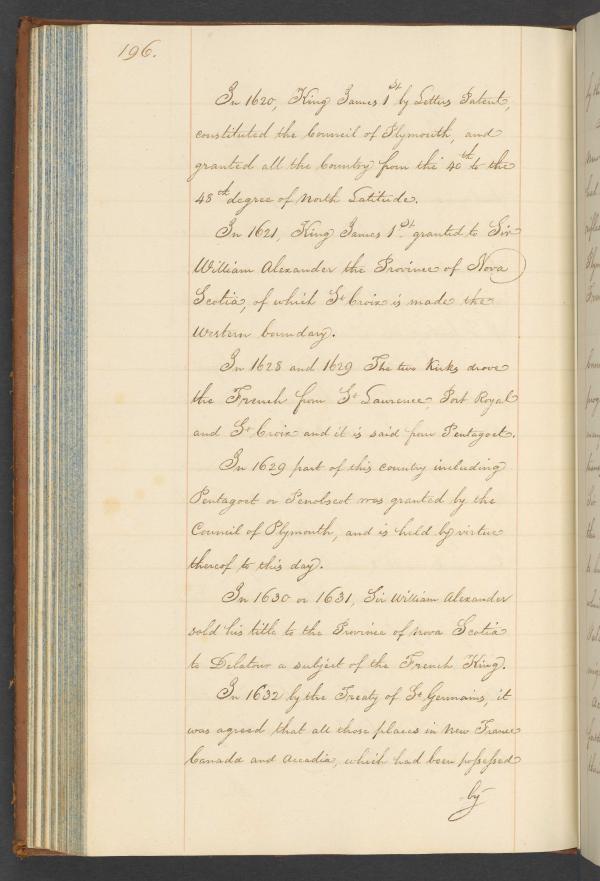 196.
In 1620, King James 1st by Letters Patent,
constituted the Council of Plymouth, and
granted all the Country from the 40th to the
48th degree of North Latitude.
In 1621, King James 1st granted to Sir
William Alexander the Province of Nova
Scotia, of which St Croix is made the
Western boundary.
In 1628 and 1629 The two Kirks drove
the French from St Lawrence, Port Royal
and St Croix and it is said from Pentagoet.
In 1629 part of this country including
Pentagoet or Penobscot was granted by the
Council of Plymouth, and is held by virtue
thereof to this day.
In 1630 or 1631, Sir William Alexander
sold his title to the Province of Nova Scotia
to Delatour a subject of the French King.
In 1632 by the Treaty of St Germains, it
was agreed that all those places in New France
Canada and Accadia, which had been possessed
by